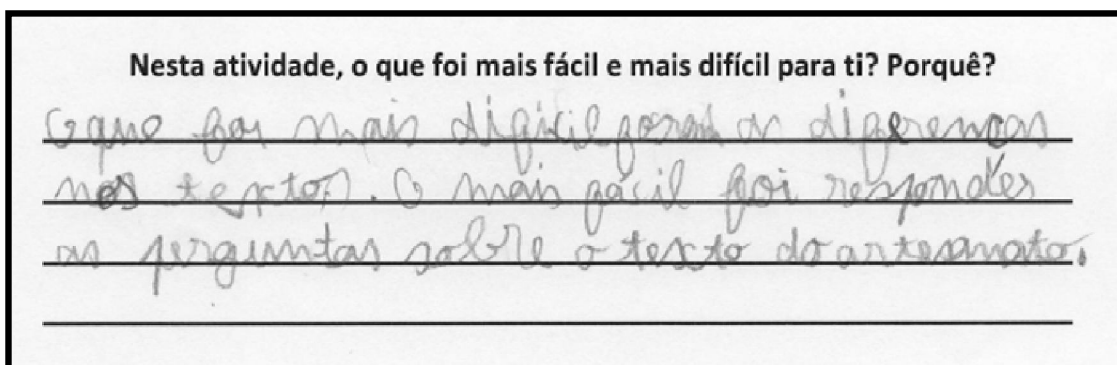 Nesta atividade, o que foi mais fácil e mais difícil para ti? Porquê?
O que foi mais difícil foram as diferenças
nos textos. O mais fácil foi responder
as perguntas sobre o texto do artesanato.